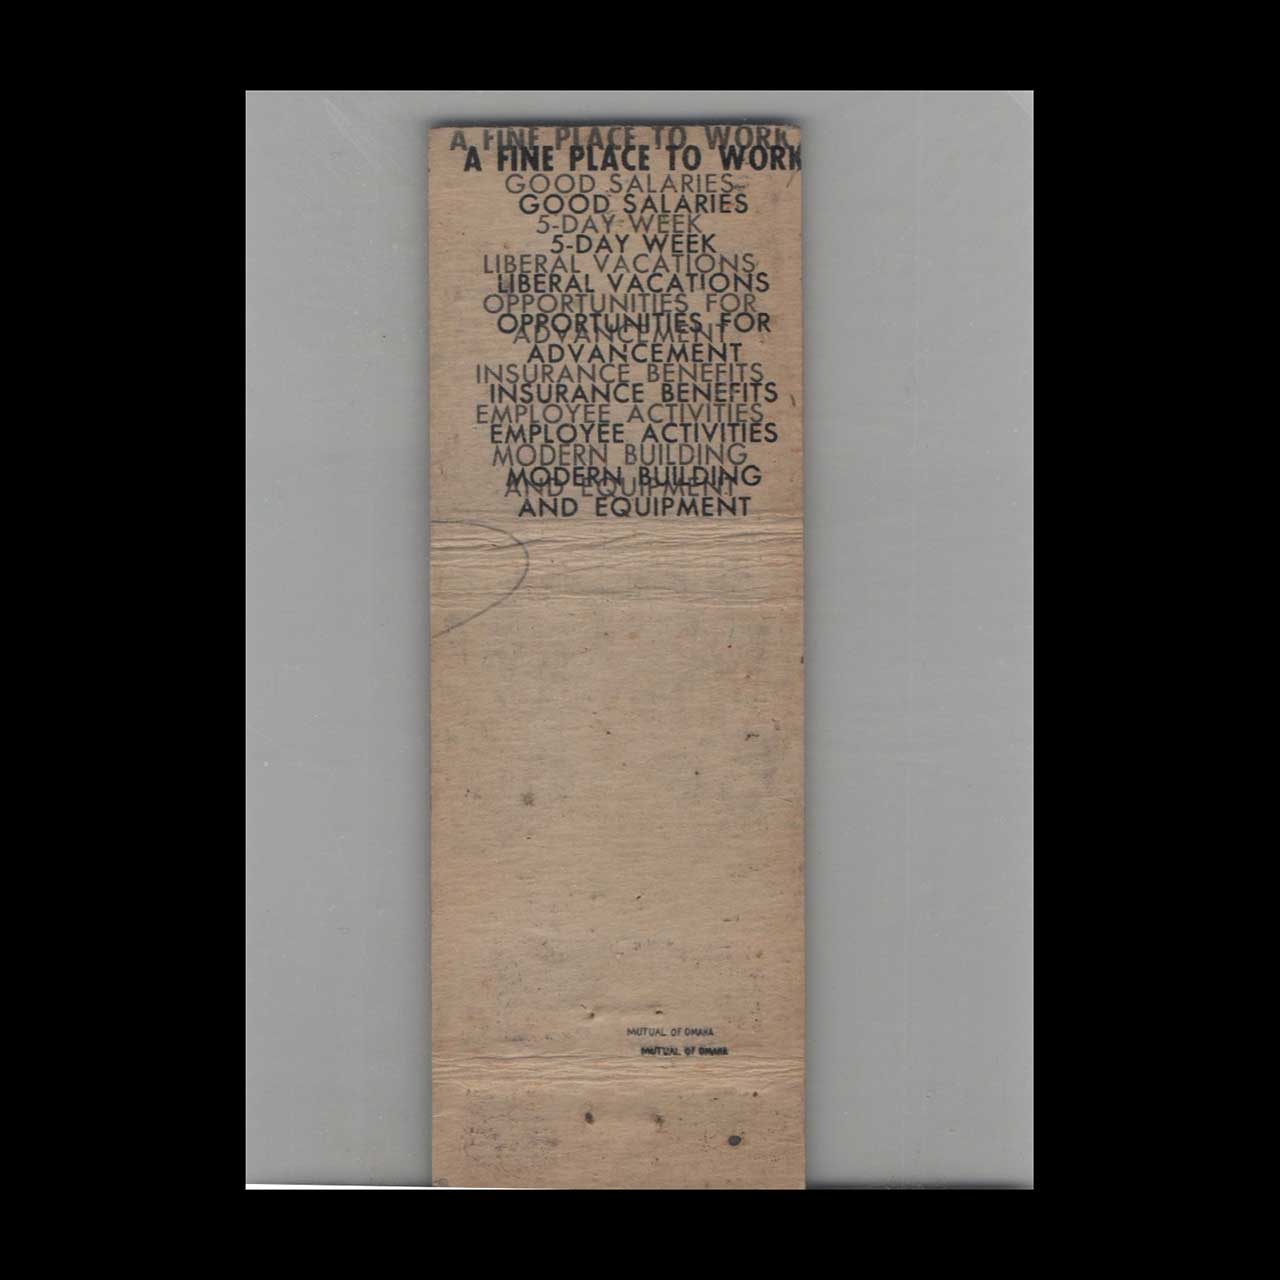 A FINE PLACE TO WORK
A FINE PLACE TO WORK
GOOD SALARIES
GOOD SALARIES
5-DAY WEEK
5-DAY WEEK
LIBERAL VACATIONS
LIBERAL VACATIONS
OPPORTUNITIES FOR
OPPORTUNITIES FOR
ADVANCEMENT
ADVANCEMENT
INSURANCE BENEFITS
INSURANCE BENEFITS
EMPLOYEE ACTIVITIES
EMPLOYEE ACTIVITIES
MODERN BUILDING
MODERN BUILDING
AND EQUIPMENT
AND EQUIPMENT
MUTUAL OF OMAHA
MUTUAL OF OMAHA